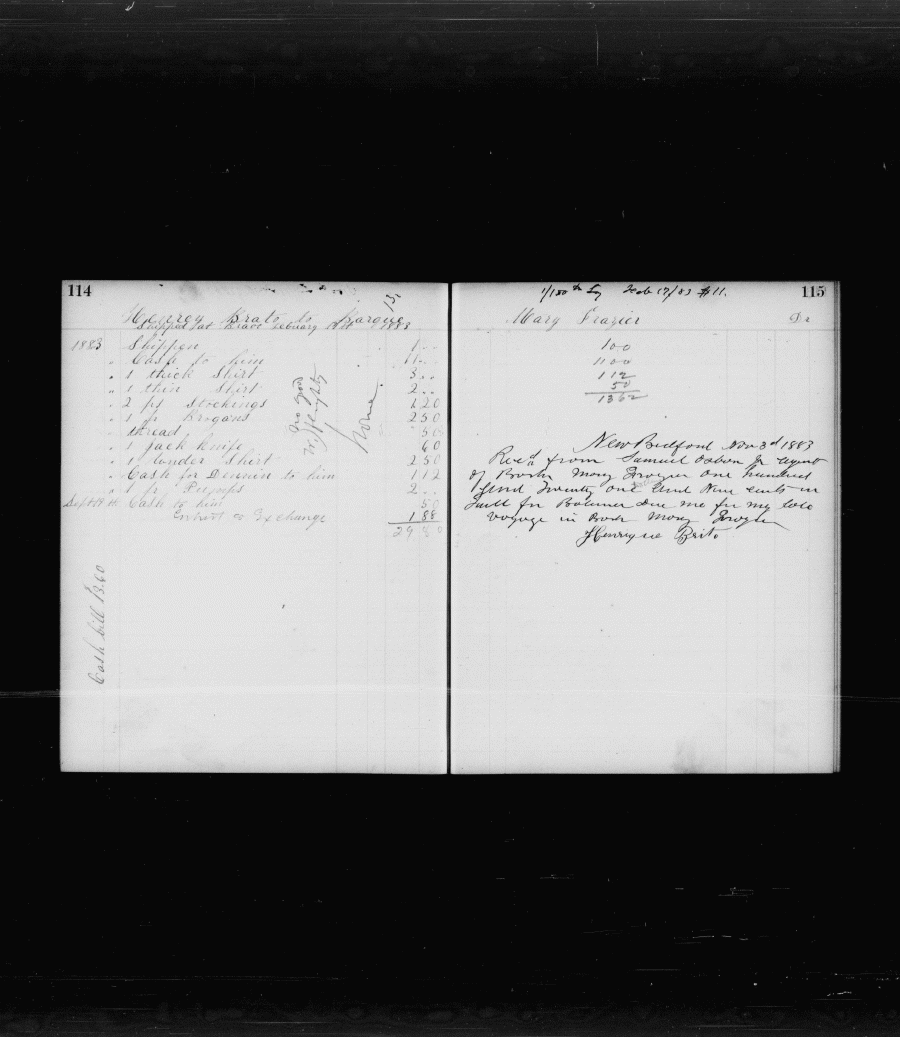 114
13
Henrey Brato to Barque
Shipped at Bravo Febuary 1883
1883 Shippen 1..
" Cash to him 11..
" 1 thick Shirt 3..
" 1 thin Shirt 2..
" 2 ps Stockings 1 20
" 1 p Brogans 2 50
" thread 50
" 1 Jack Knife 60
" 1 Under Shirt 2 50
" Cash for Dinner to him 1 12
" 1 pr Pumps 2..
Sept Cash to him 50
Exchange 1 88
29 80
no good
Cash bill 13.60
1/180th Ly Feb 17/83 $11.
115
Mary Frazier
Dr
1 00
11 00
1 12
50
13 62
New Bedford Nov 3d 1883
Rec'd from Samuel Osborn Jr Agent
of Bark Mary Frazier One hundred
And Twenty one And Nine cents in
full for Balance Due me for my
voyage in Bark Mary Frazier
Henryque Brito